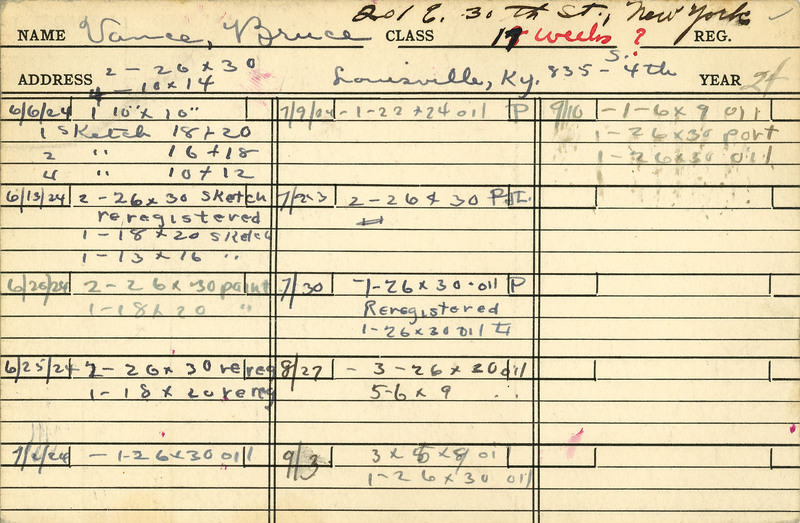 201 E. 30th St., New York
NAME Vance, Bruce CLASS 17 weeks ? REG.
2 - 26 x 30
4 - 10 x 14
ADDRESS Louisville, Ky. 835 - S. 4th YEAR 24
6/6/24 1 10" x 10"
1 Sketch 18 x 20
2 " 16 x 18
4 " 10 x 12
6/13/24 2 - 26 x 30 Sketch
reregistered
1 - 18 x 20 Sketch
1 - 13 x 16 "
6/20/24 2 - 26 x 30 paint
1 - 18 x 20 "
6/25/24 2 - 26 x 30 rereg
1 - 18 x 20 rereg
7/2/24 - 1 - 26 x 30 oil
7/9/24 - 1 - 22 x 24 oil P
7/23 2 - 26 x 30
7/30 - 1 - 26 x 30 - oil P
Reregistered
1 - 26 x 30 oil
8/27 - 3 - 26 x 30 oil
5 - 6 x 9 "
9/3 3 x 8 oil
1 - 26 x 30 oil
9/10 - 1 - 6 x 9 oil
1 - 26 x 30 port
1 - 26 x 30 oil